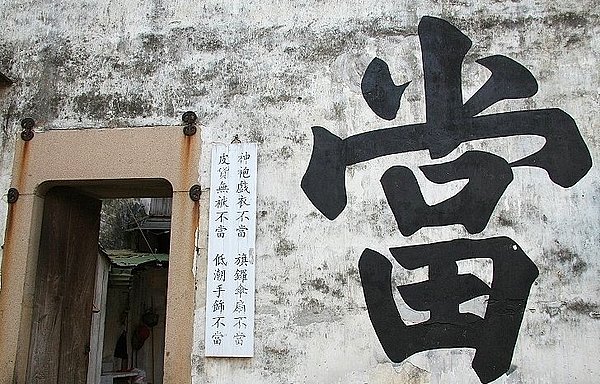 當
神袍戲衣不當 旗鑼傘扇不當
皮寶無袱不當 低潮手師不當